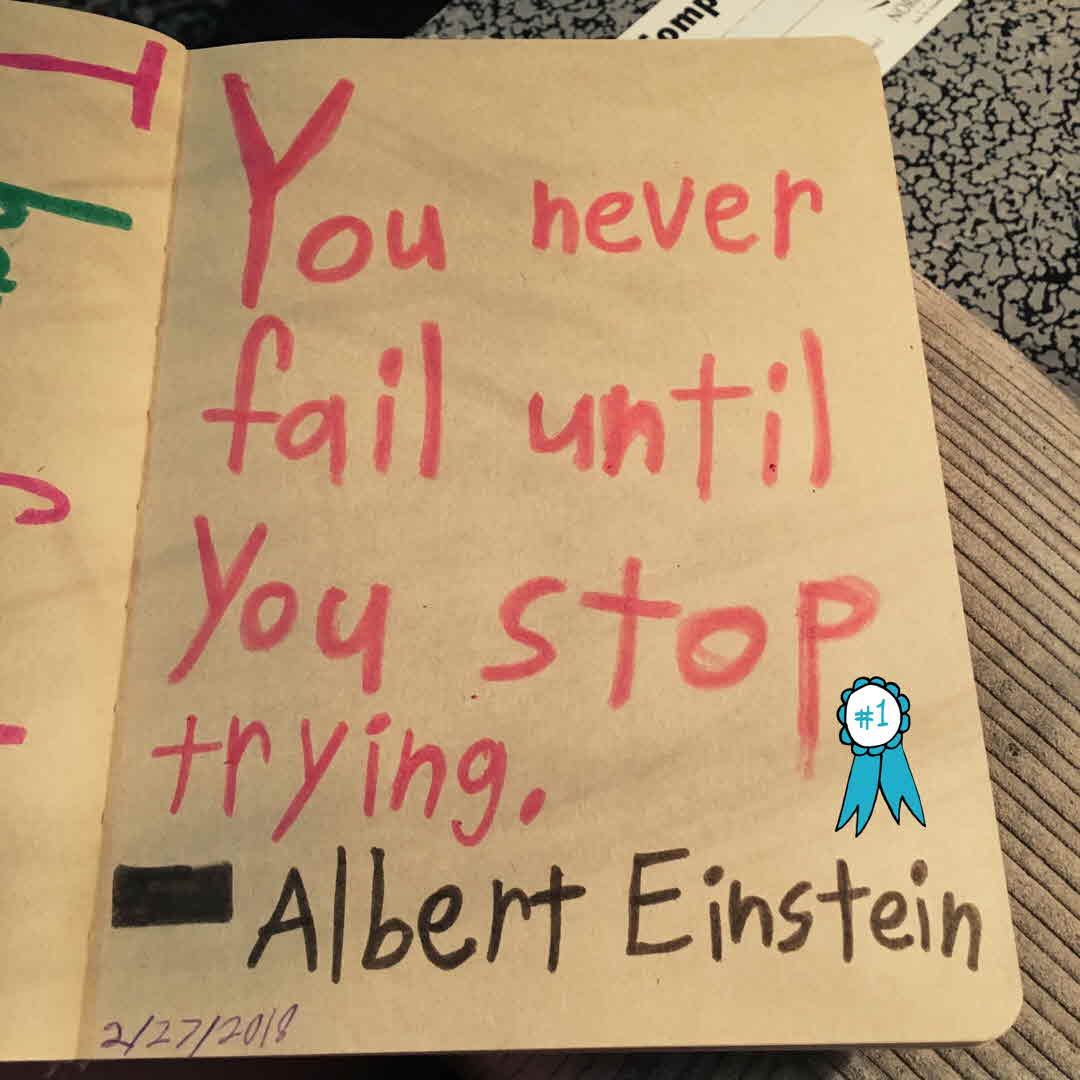 You never
fail until
you stop
trying.
- Albert Einstein
2/27/2018
#1